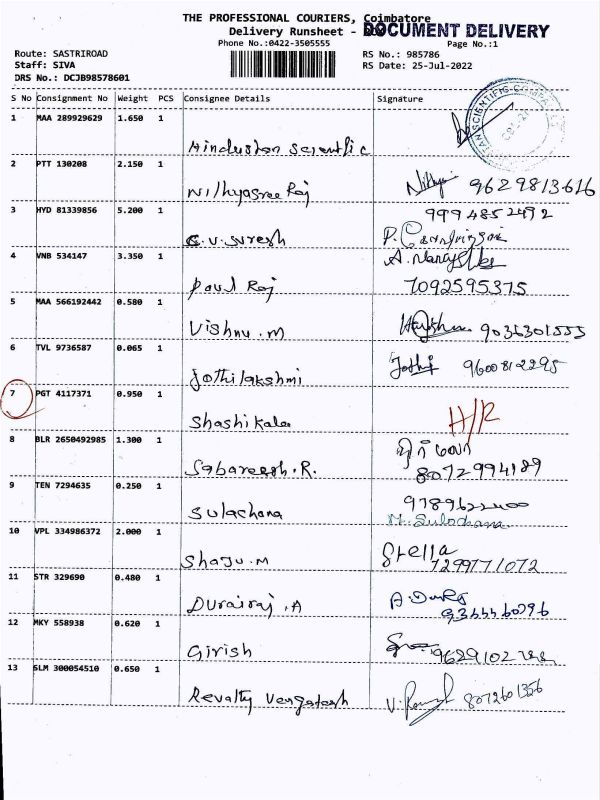 THE PROFESSIONAL COURIERS, Coimbatore
Delivery Runsheet -
DOCUMENT DELIVERY
Phone No.:0422-3505555
Page No.:1
Route: SASTRIROAD
RS No.: 985786
Staff: SIVA
RS Date: 25-Jul-2022
DRS No.: DCJB98578601
S No Consignment No Weight PCS Consignee Details Signature
1 MAA 289929629 1.650 1
Hindustan Scientific
2 PTT 130208 2.150 1
Nithyasree Raj 9629813616
3 HYD 81339856 5.200 1 9994852492
G.V. Suresh
4 VNB 534147 3.350 1
Paul Raj 7092595375
5 MAA 566192442 0.580 1
Vishnu.M 9036301555
6 TVL 9736587 0.065 1
Jothilakshmi Jothi 9600812295
7 PGT 4117371 0.950 1
Shashikala H/R
8 BLR 2650492985 1.300 1
Sabareesh.R. 8072994189
9 TEN 7294635 0.250 1
Sulachana M. Sulochana
10 VPL 334986372 2.000 1 Stella
Shaju.M 7299771072
11 STR 329690 0.480 1
Durairaj.A
12 MKY 558938 0.620 1
Girish
13 SLM 300054510 0.650 1
Revalty Vengatesh